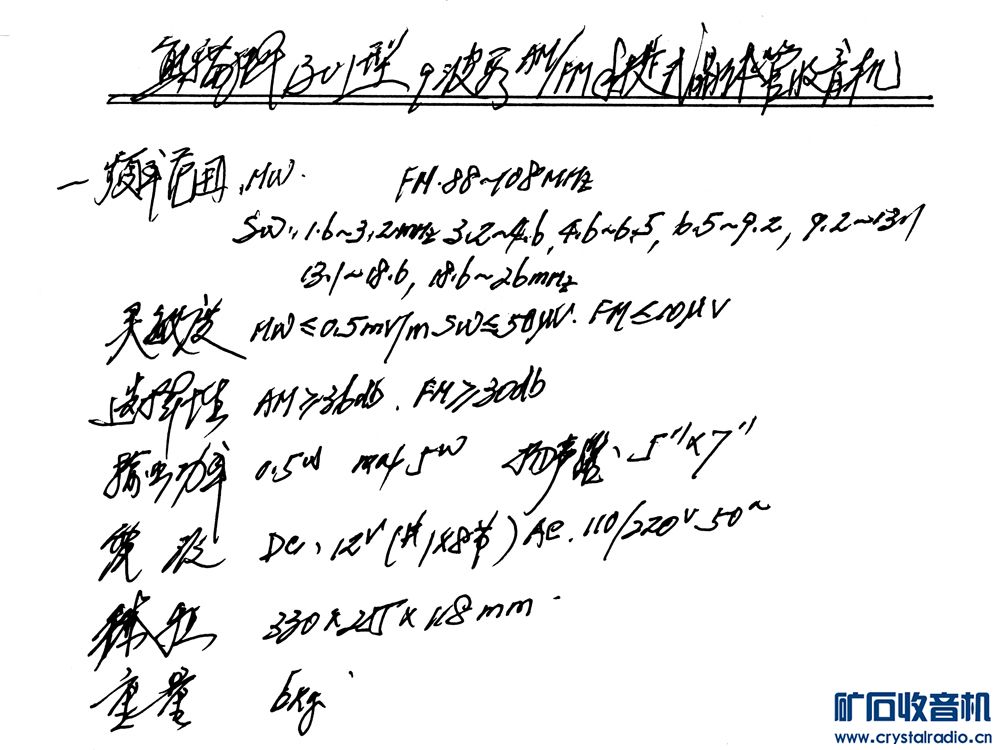 熊猫牌1301型 9波段AM/FM便携式晶体管收音机
一 频率范围.MW. FM.88~108MHz
SW:1.6~3.2mHz 3.2~4.6, 4.6~6.5, 6.5~9.2, 9.2~13.1
13.1~18.6, 18.6~26mHz
灵敏度 MW≤0.5mV/m SW≤50μV. FM≤10μV
选择性 AM≥36db. FM≥30db
输出功率 0.5W max 5W 扬声器、5"×7"
电源 DC、12V(#1×8节)AC.110/220V 50~
体积 330×255×118mm
重量 6kg
矿石收音机
www.crystalradio.cn